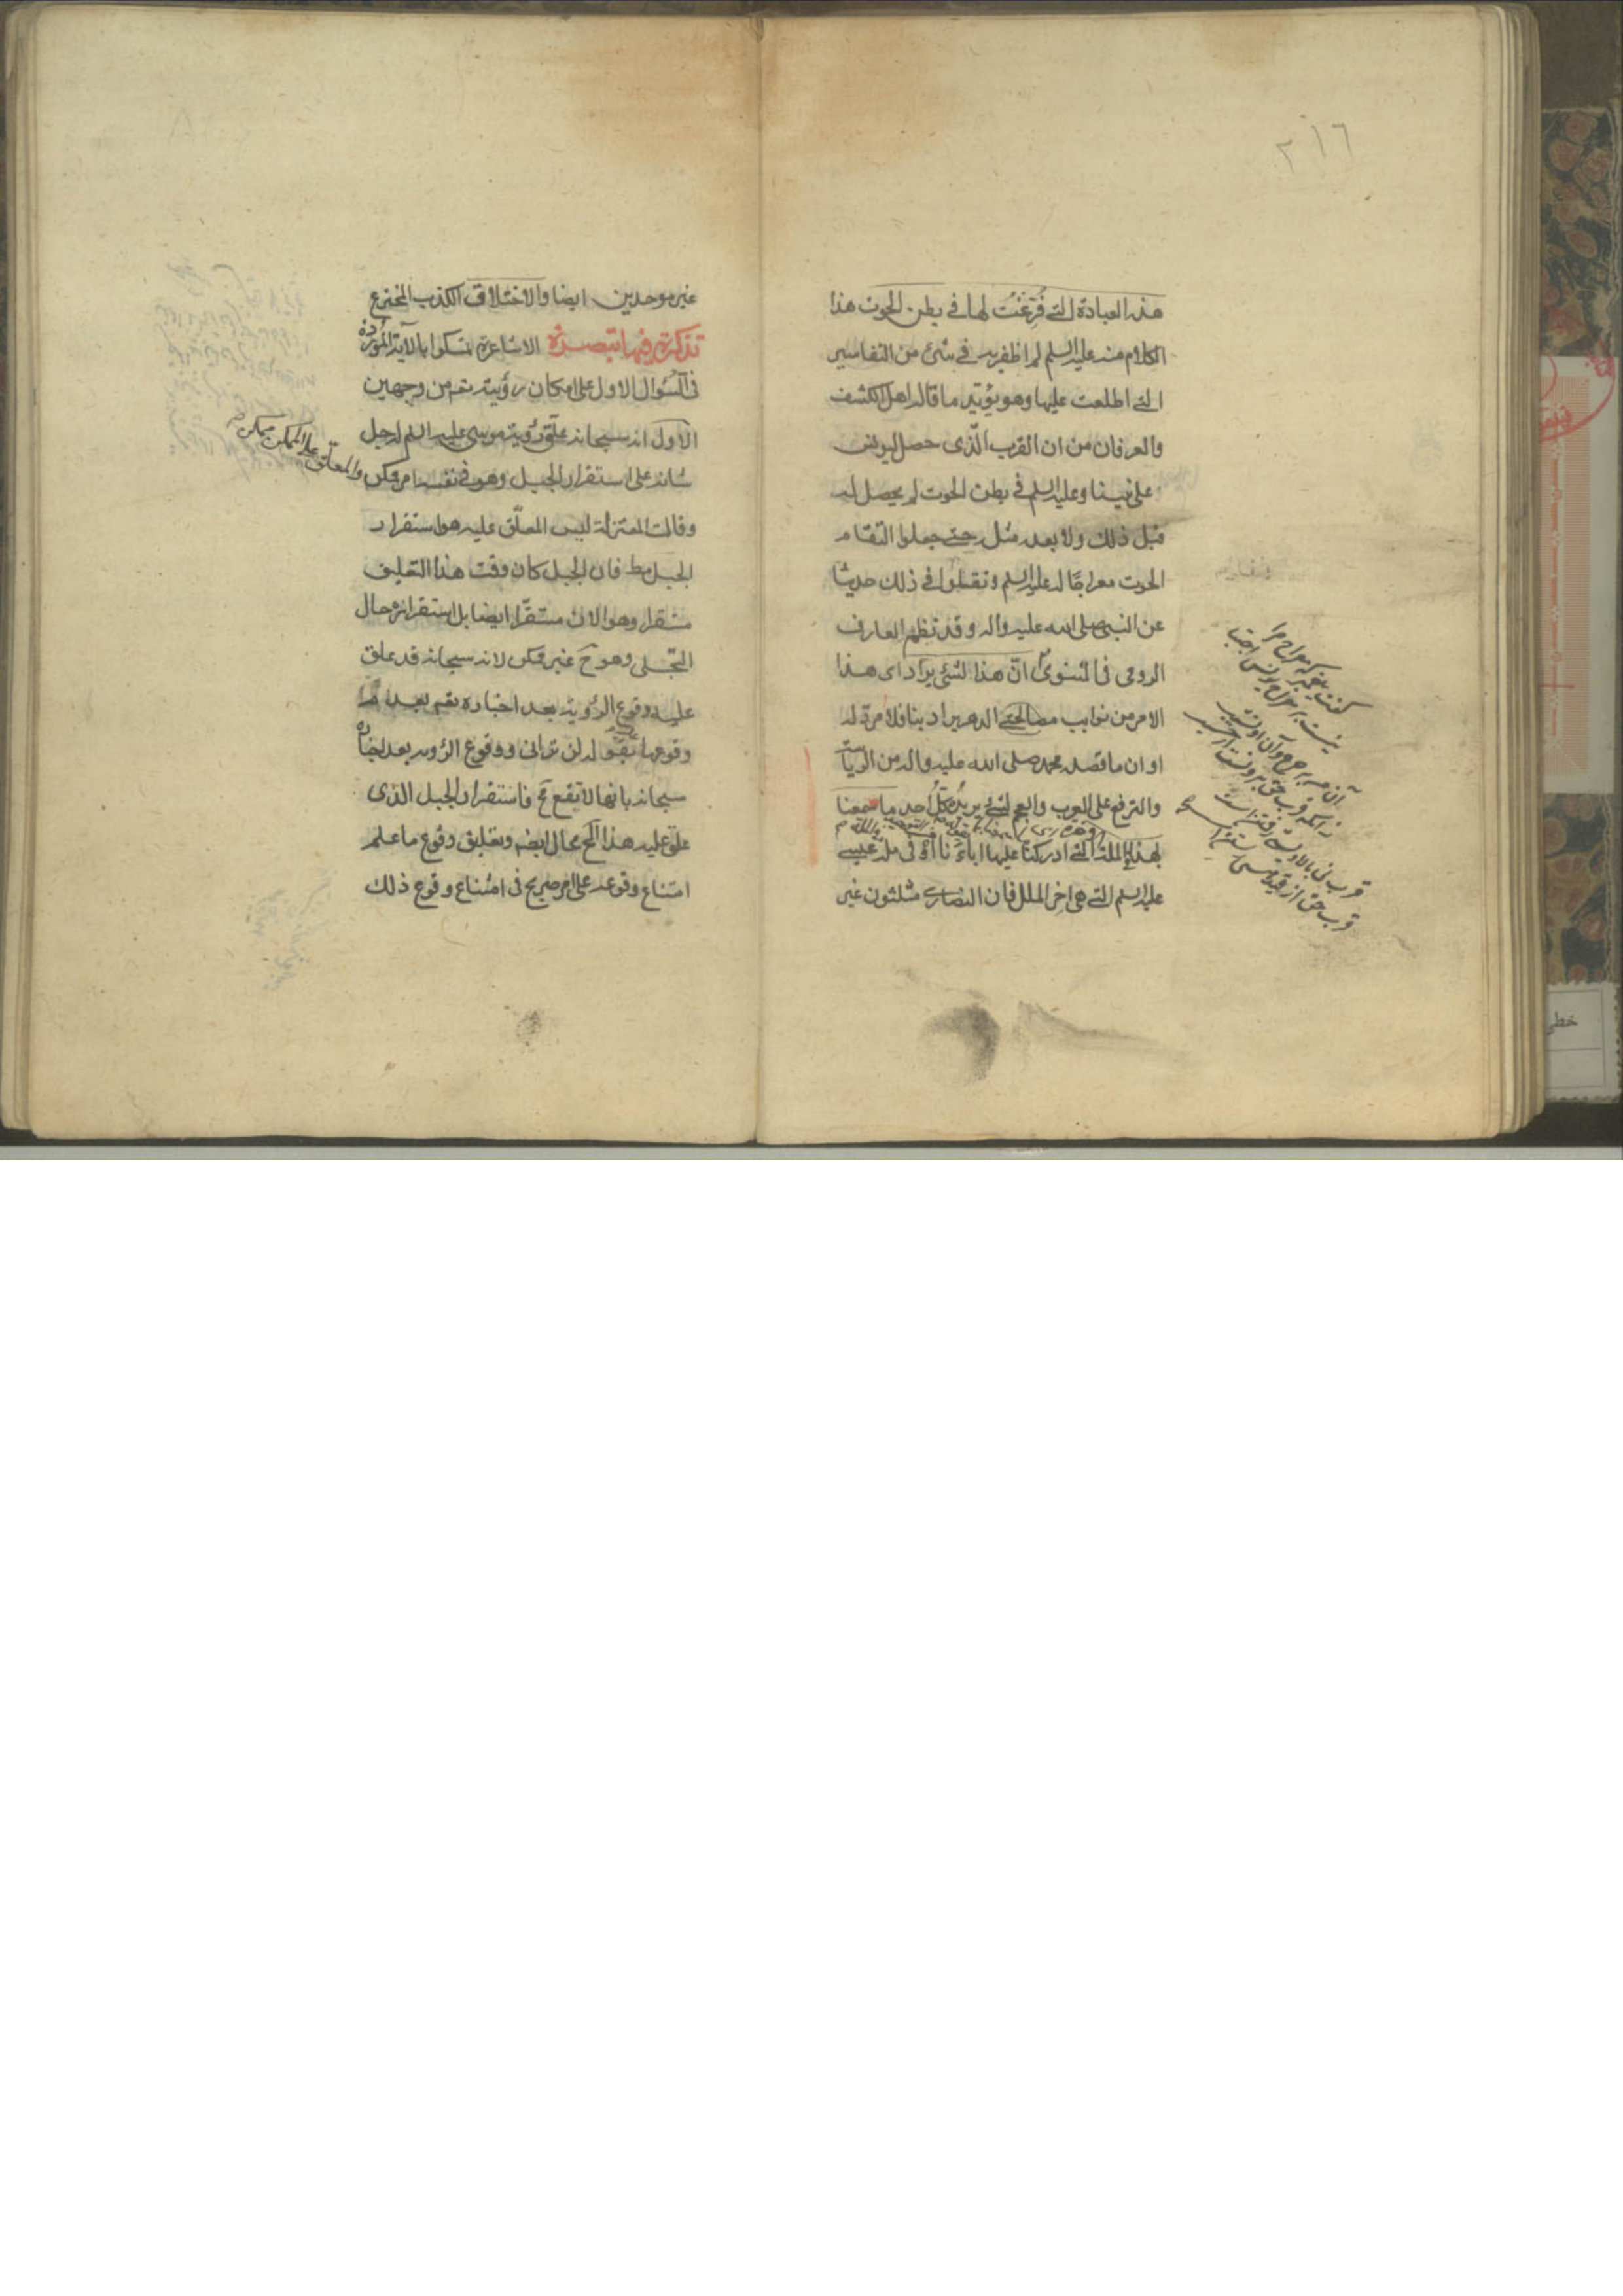 ٢١٦
هذه العبادة التي فُرِّغتُ لها في بطن الحوت هذا
الكلام منه عليه السلم لم اظفر به في شئ من التفاسير
التي اطلعت عليها وهو يؤيّد ما قاله اهل الكشف
والعرفان من ان القرب الّذى حصل ليونس
على نبينا وعليه السلم في بطن الحوت لم يحصل له
قبل ذلك ولا بعده مثله حتى جعلوا التقام
الحوت معراجًا له عليه السلم ونقلوا في ذلك حديثا
عن النبي صلى الله عليه واله وقد نظم العارف
الرومى فى المثنوى انّ هذا لشئ يراد اى هذا
الامر من نوايب الدهر يراد بنا فلا مردّ له
او ان ما قصده محمد صلى الله عليه واله من الرياسة
والترفع على العرب والعجم لشئ يريده كلّ احد ما سمعنا
بهذا الملة التي ادركنا عليها اباءنا او فى ملة عيسى
عليه السلم التي هى اخر الملل فان النصارى مثلثون غير
كفت پيغمبر كه معراج مرا
نيست بر معراج يونس اجتبا
آن من بر چرخ وآن او نشيب
زانكه قرب حق برونست از حسيب
قرب نى بالا و پستى رفتن است
قرب حق از قيد هستى رستن است
غير موحدين ايضا والاختلاق الكذب المخترع
تذكرة فيها تبصرة الاشاعرة تمسكوا بالآية الموردة
فى السؤال الاول على امكان رؤيته تعـ من وجهين
الاول انه سبحانه علّق رؤية موسى عليه السلم له جل
شانه على استقرار الجبل وهو في نفسه امر ممكن
والمعلّق على الممكن ممكن
وقالت المعتزلة ليس المعلّق عليه هو استقرار
الجبل مط فان الجبل كان وقت هذا التعليق
مستقرا وهو الان مستقرّ ايضا بل استقراره حال
التجلى وهو ح غير ممكن لانه سبحانه قد علق
عليه وقوع الرؤية بعد اخباره تعـ بعدم
وقوعها بقوله لن ترانى ووقوع الرؤيه بعد اخباره
سبحانه بانها لا تقع مح فاستقرار الجبل الذى
علق عليه هذا المح محال ايضا وتعليق وقوع ما علم
امتناع وقوعه على امر صريح فى امتناع وقوع ذلك
خطى